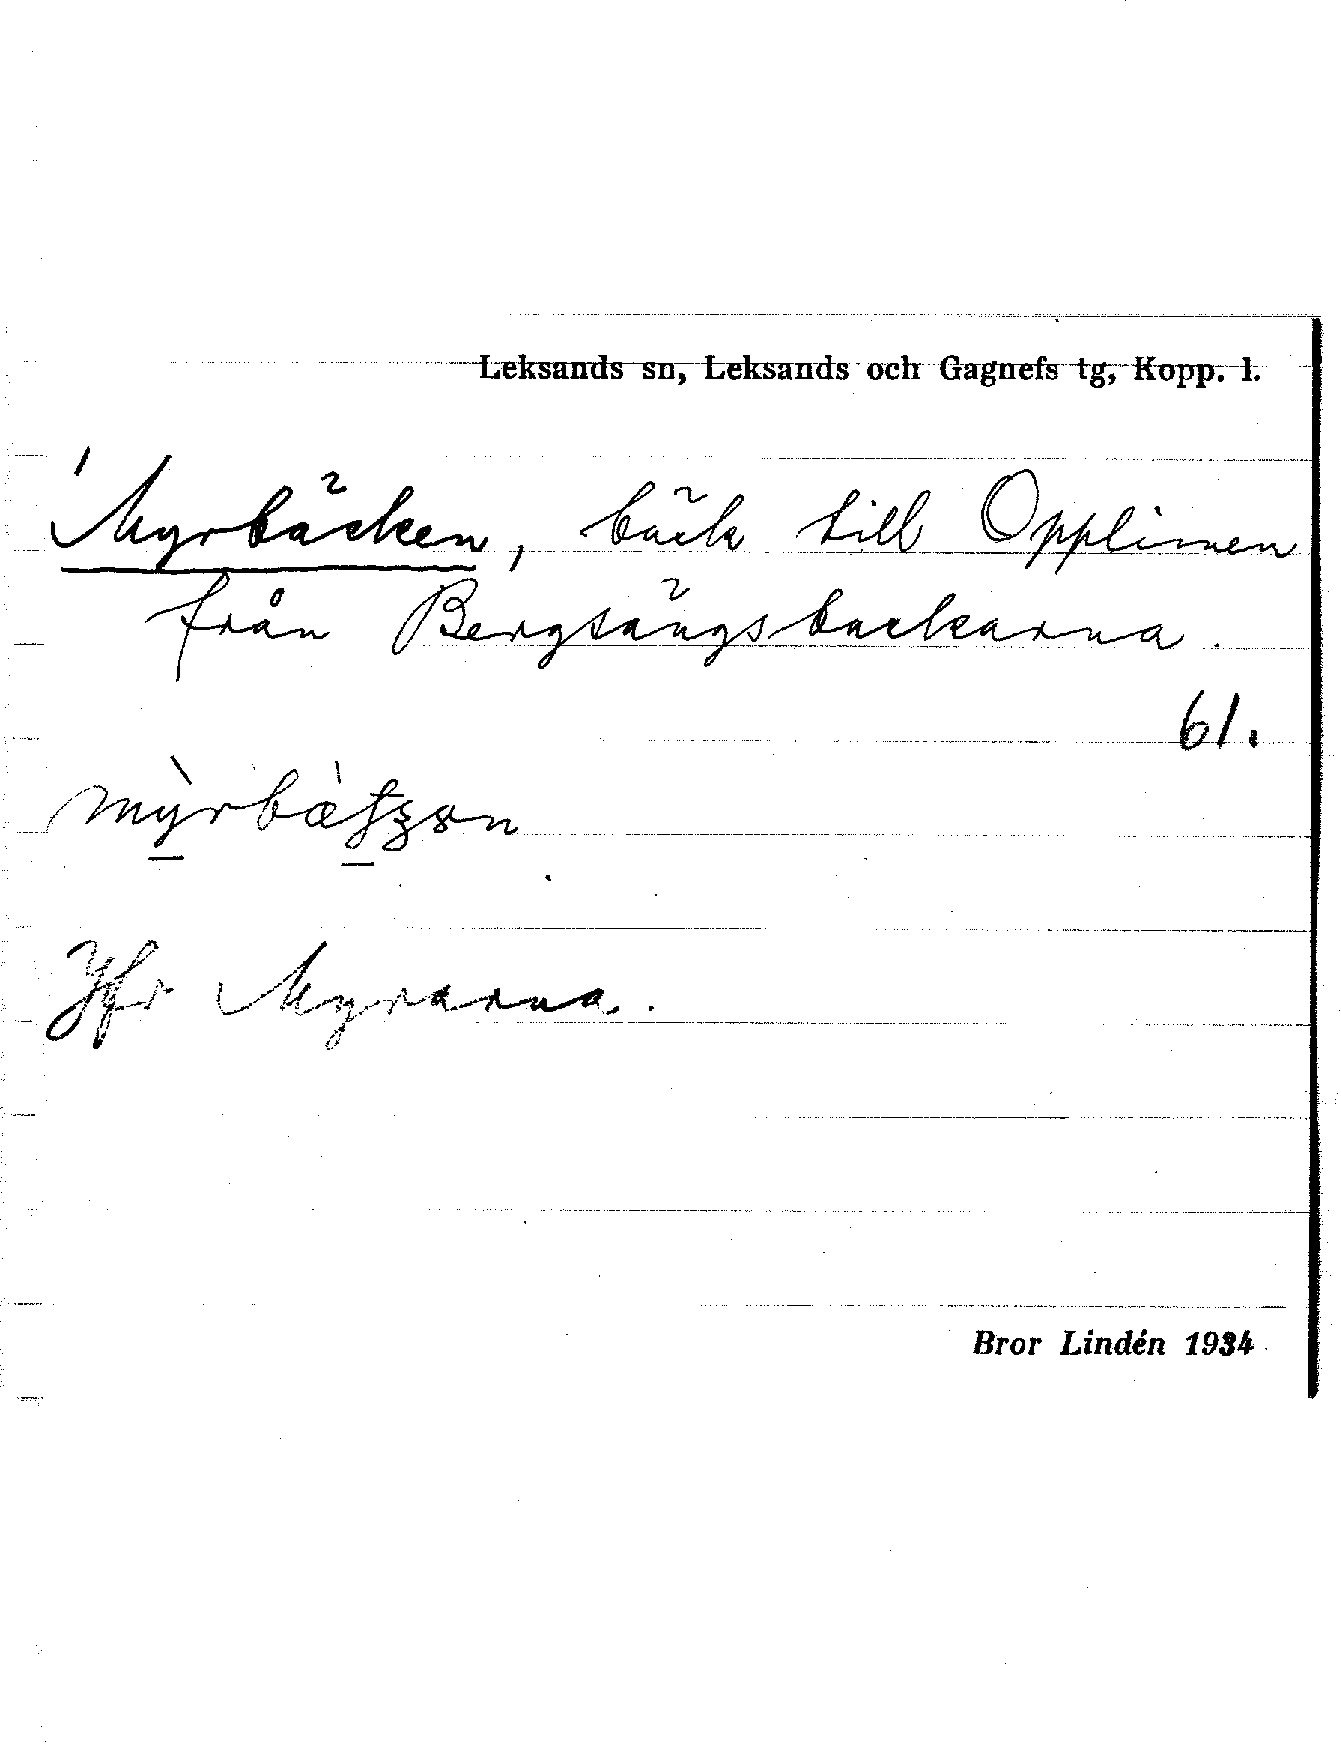 Leksands sn, Leksands och Gagnefs tg, Kopp. l.
Myrbäcken, bäck till Opplimen
från Bergsängsbackarna.
61.
Jfr Myrarna.
Bror Lindén 1934